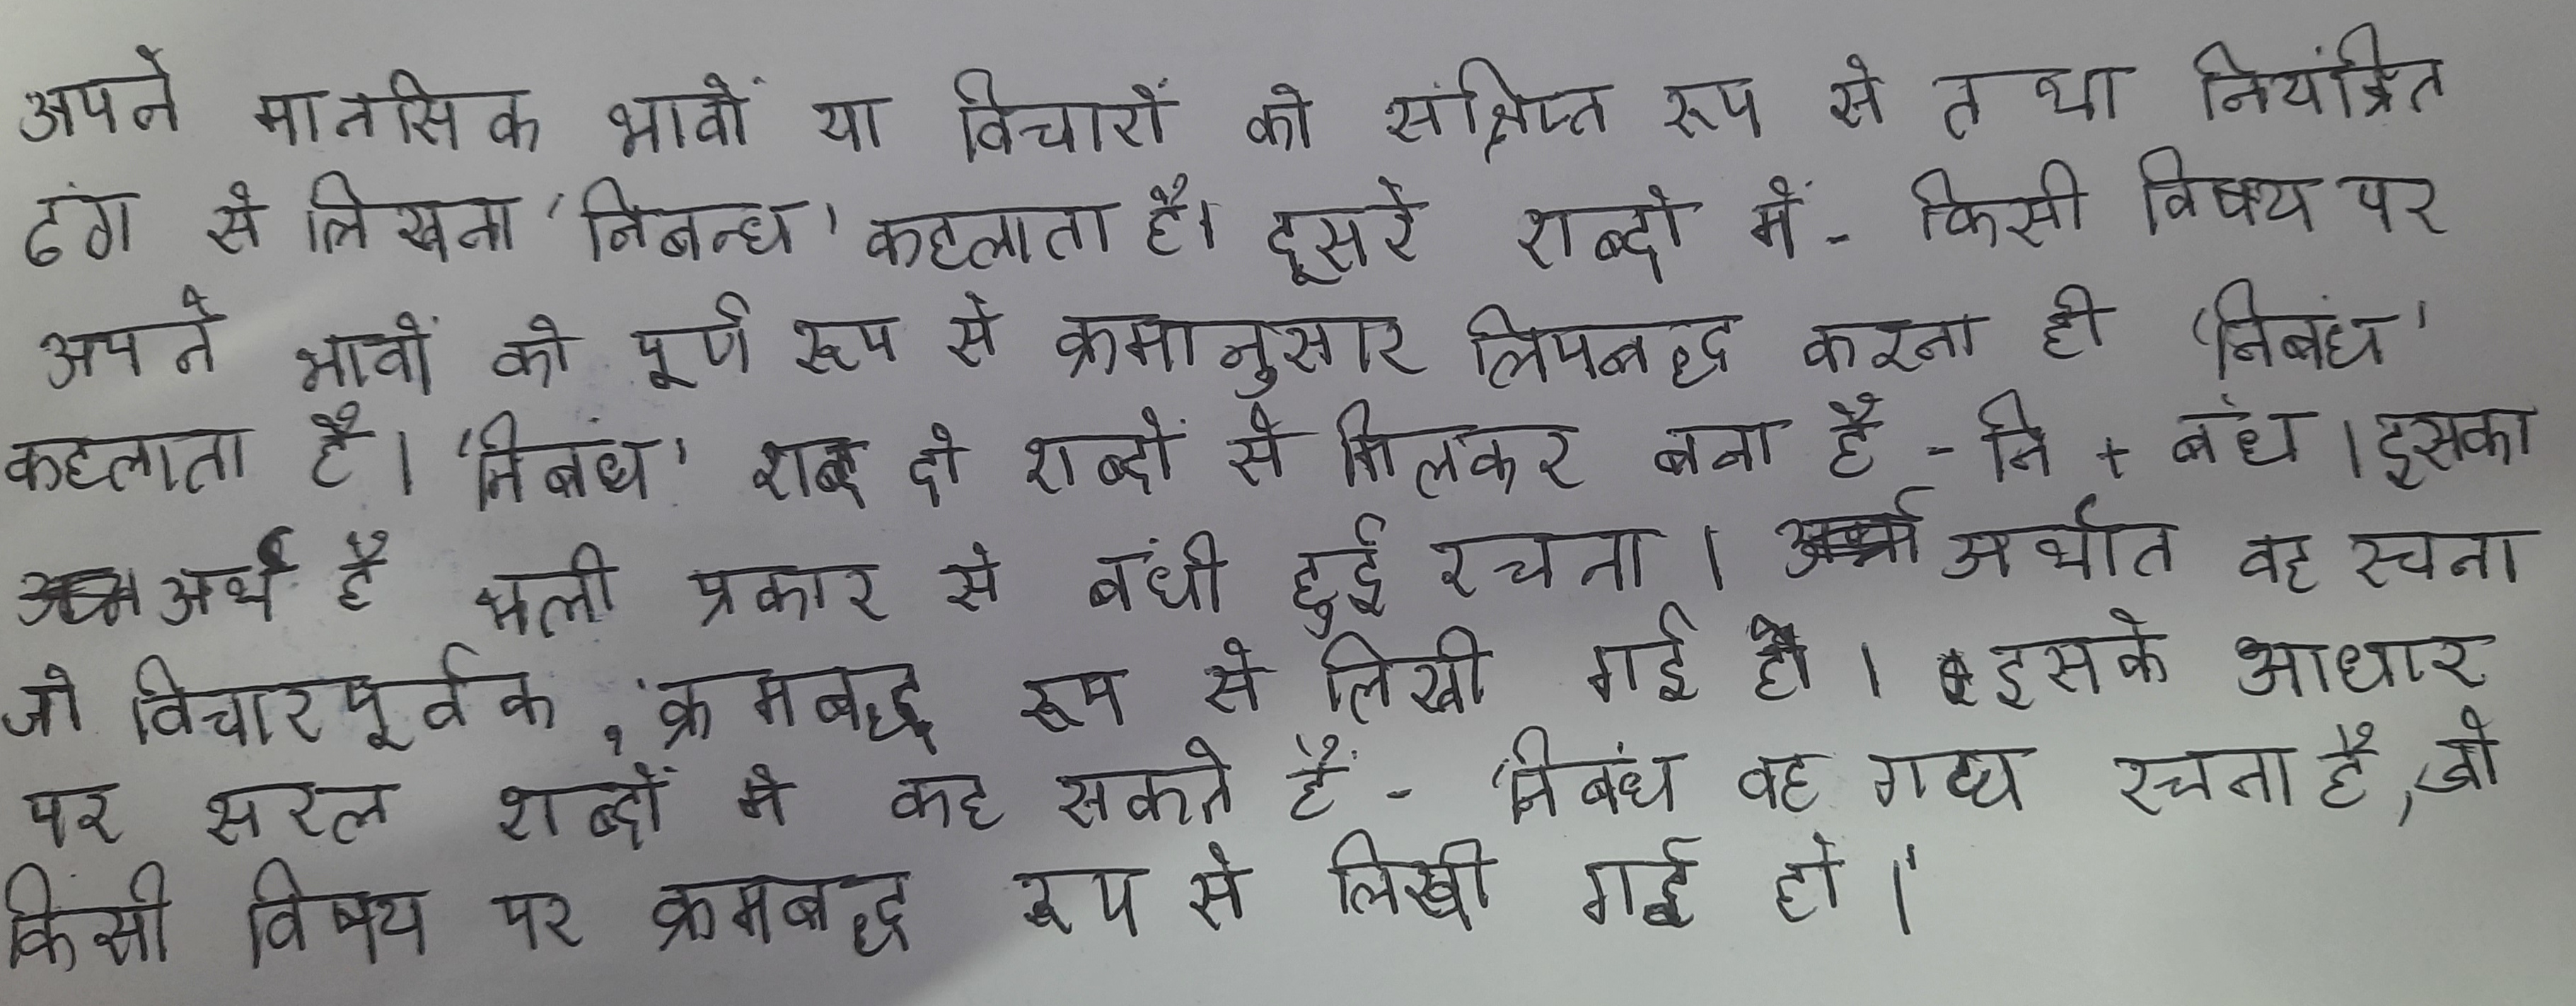 अपने मानसिक भावों या विचारों को संक्षिप्त रूप से तथा नियंत्रित
ढंग से लिखना 'निबन्ध' कहलाता है। दूसरे शब्दो में - किसी विषय पर
अपने भावों को पूर्ण रूप से क्रमानुसार लिपनबद्ध करना ही 'निबंध'
कहलाता है। 'निबंध' शब्द दो शब्दों से मिलकर बना है - नि + बंध। इसका
अर्थ है भली प्रकार से बंधी हुई रचना। अर्थात वह रचना
जो विचारपूर्वक, क्रमबद्ध रूप से लिखी गई हो। इसके आधार
पर सरल शब्दों मे कह सकते हैं - 'निबंध वह गद्य रचना है, जो
किसी विषय पर क्रमबद्ध रूप से लिखी गई हो।'